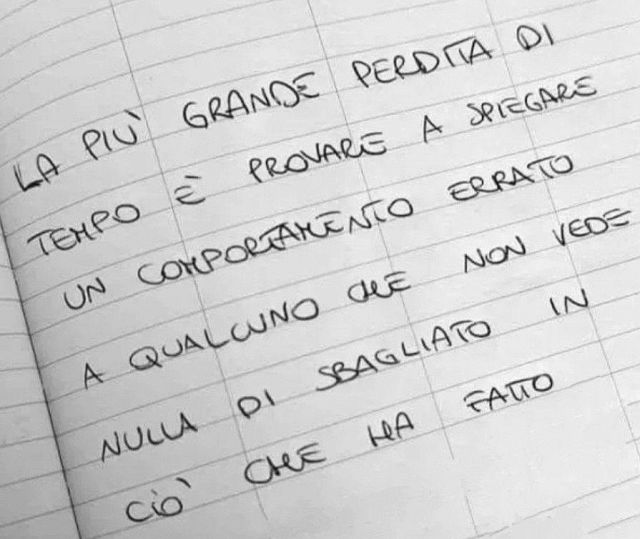 LA PIÙ GRANDE PERDITA DI
TEMPO È PROVARE A SPIEGARE
UN COMPORTAMENTO ERRATO
A QUALCUNO CHE NON VEDE
NULLA DI SBAGLIATO IN
CIÒ CHE HA FATTO